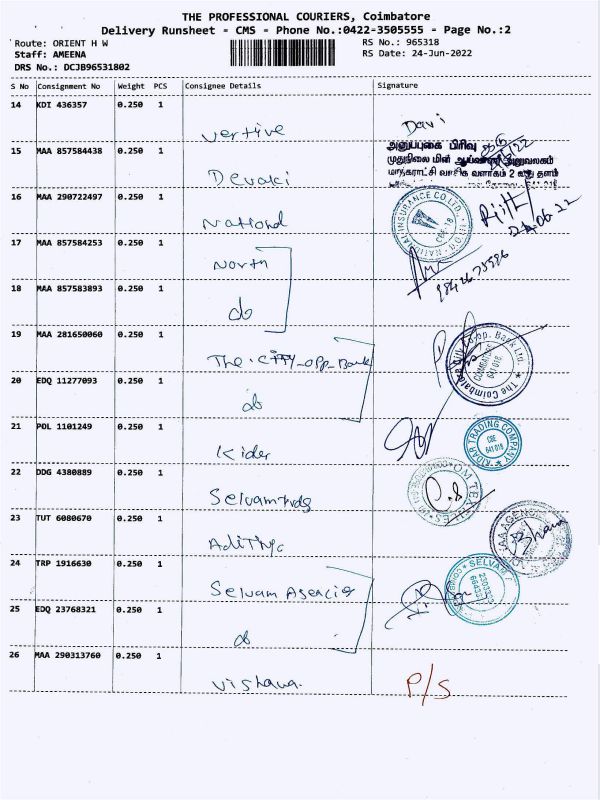 THE PROFESSIONAL COURIERS, Coimbatore
Delivery Runsheet - CMS - Phone No.:0422-3505555 - Page No.:2
Route: ORIENT H W
RS No.: 965318
Staff: AMEENA
RS Date: 24-Jun-2022
DRS No.: DCJB96531802
S No Consignment No Weight PCS Consignee Details Signature
14 KDI 436357 0.250 1
Vertive
Devi
15 MAA 857584438 0.250 1
அனுப்புகை பிரிவு
முதுநிலை மின் ஆய்வாளர் அனுவலகம்
மாநகராட்சி வணிக வளாகம் 2 வது தளம்
Devaki
16 MAA 290722497 0.250 1
National
INSURANCE CO LTD.
CBE-18
24.06.22
17 MAA 857584253 0.250 1
North
18 MAA 857583893 0.250 1
do
19 MAA 281650060 0.250 1
The City opp Bank
The Coimbatore City Co.op. Bank Ltd.
COIMBATORE
641 018.
20 EDQ 11277093 0.250 1
do
21 POL 1101249 0.250 1
Kider
KIDAR TRADING COMPANY
CBE
641 018
22 DDG 4380889 0.250 1
OM TEXTILES
23 TUT 6080670 0.250 1
Adithya
24 TRP 1916630 0.250 1
Selvam
SELVA
25 EDQ 23768321 0.250 1
do
26 MAA 290313760 0.250 1
Vishava
P/S